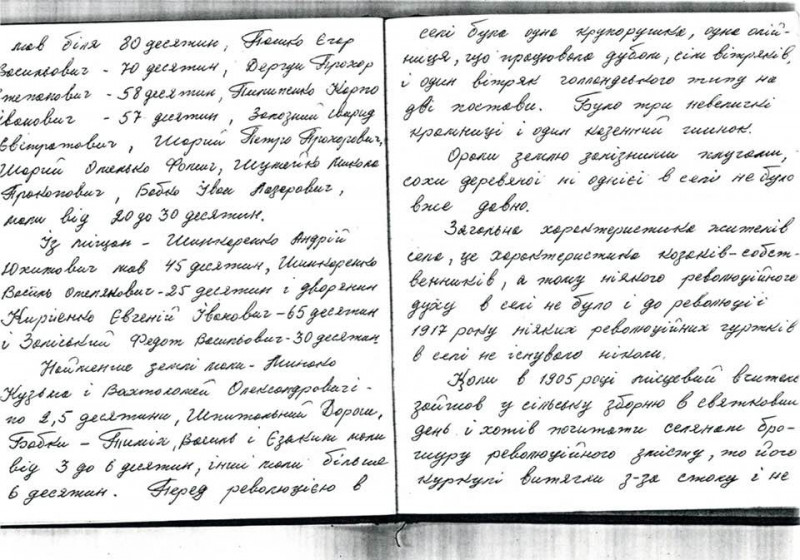 мав біля 80 десятин, Пошко Єгор
Васильович - 70 десятин, Дергун Прохор
Степанович - 58 десятин, Пилипенко Карпо
Іванович - 57 десятин, Запозний
Євстратович, Шарий Петро Прохорович,
Шарий Омелько Фомич, Шумейко Микола
Прокопович, Бабко Іван Лазорович,
мали від 20 до 30 десятин.
Із міщан - Шинкаренко Андрій
Юхимович мав 45 десятин, Шинкаренко
Василь Омелянович - 25 десятин і дворянин
Кирієнко Євгеній Івакович - 65 десятин
і Заліський Федот Васильович - 30 десятин
Найменше землі мали - Минако
Кузьма і Вахтоломей Олександровичі -
по 2,5 десятини, Шпитальний Дорош,
Бабки - Тиміх, Василь і Єзаким мали
від 3 до 6 десятин, інші мали більше
6 десятин. Перед революцією в
селі була одна крупорушка, одна олій-
ниця, що працювала дубом, сім вітряків,
і один вітряк голландського типу на
дві постави. Було три невеличкі
крамниці і один казенний шинок.
Орали землю залізними плугами,
сохи деревяної ні однієї в селі не було
вже давно.
Загальна характеристика жителів
села, це характеристика козаків-собст-
венників, а тому ніякого революційного
духу в селі не було і до революції
1917 року ніяких революційних гуртків
в селі не існувало ніколи.
Коли в 1905 році місцевий вчитель
зайшов у сільську зборню в святковий
день і хотів почитати селянам бро-
шуру революційного змісту, то його
куркулі витягли з-за столу і не